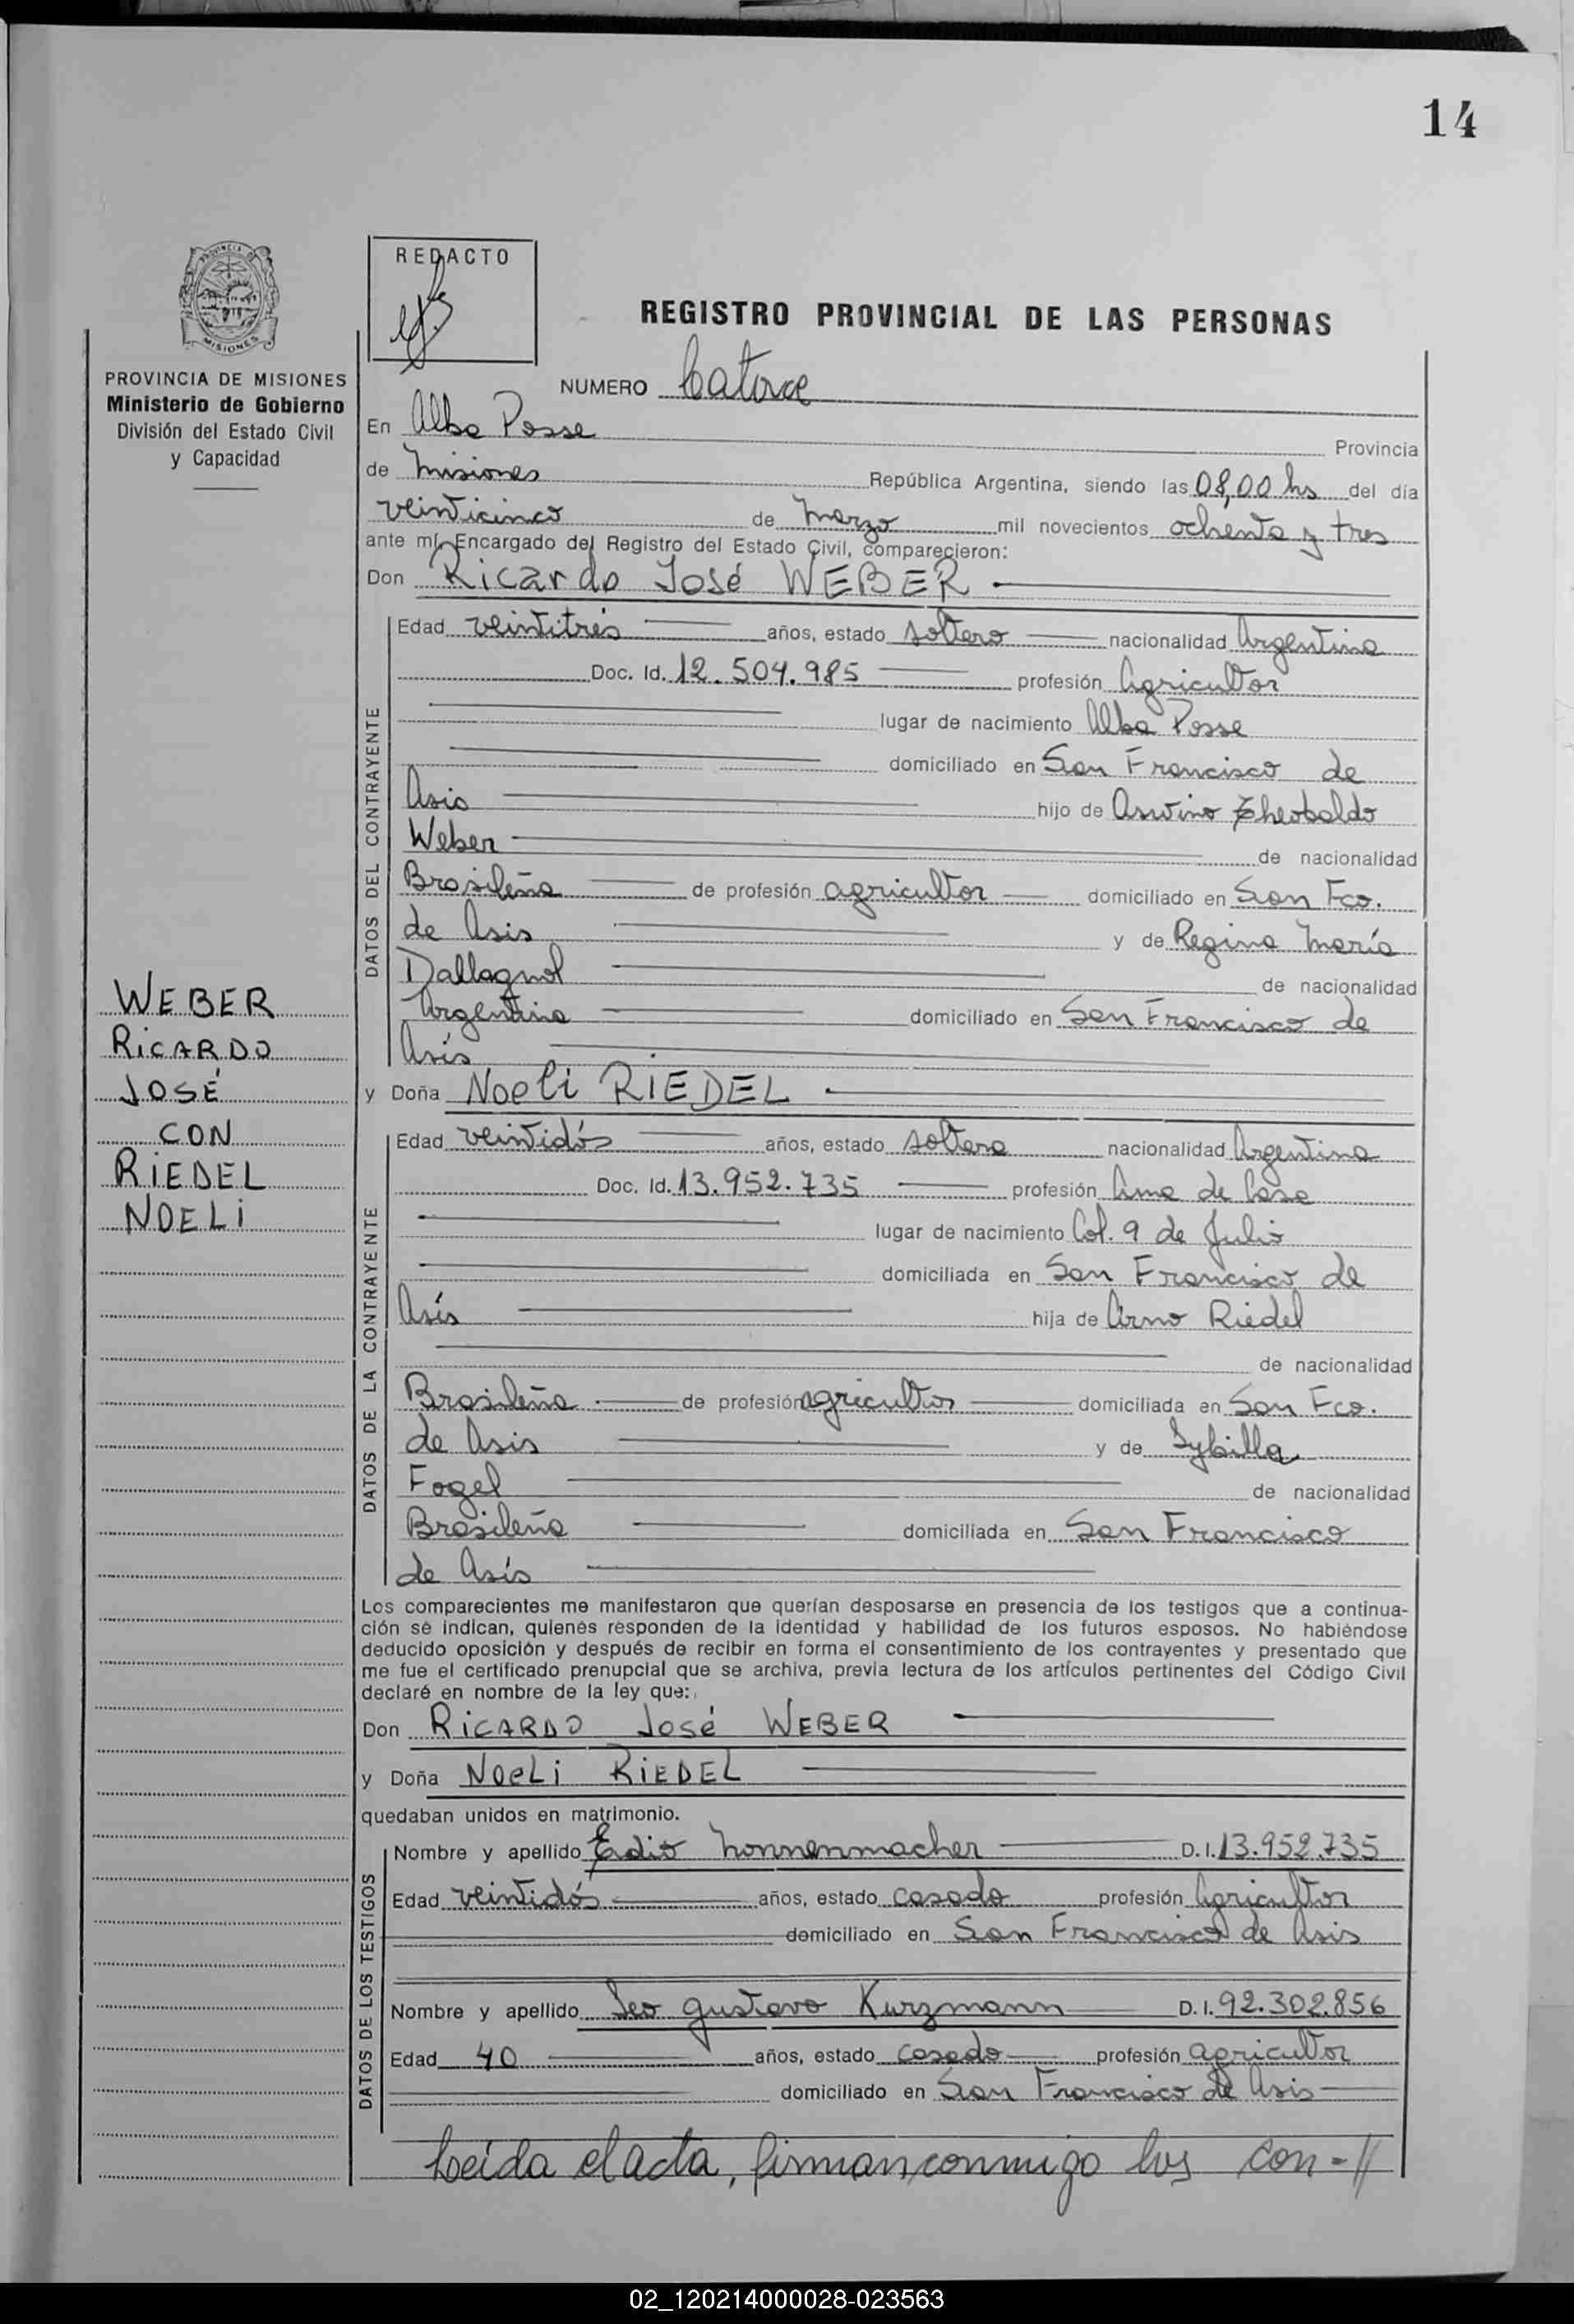 14
PROVINCIA DE
MISIONES
PROVINCIA DE MISIONES
Ministerio de Gobierno
División del Estado Civil
y Capacidad
WEBER
RICARDO
JOSÉ
CON
RIEDEL
NOELI
REDACTO
REGISTRO PROVINCIAL DE LAS PERSONAS
NUMERO Catorce
En Alba Posse Provincia
de Misiones República Argentina, siendo las 08,00 hs del día
veinticinco de Marzo mil novecientos ochenta y tres
ante mí, Encargado del Registro del Estado Civil, comparecieron:
Don Ricardo José WEBER
DATOS DEL CONTRAYENTE
Edad veintitrés años, estado soltero nacionalidad Argentina
Doc. Id. 12.504.985 profesión Agricultor
lugar de nacimiento Alba Posse
domiciliado en San Francisco de
Asis hijo de Arwino Theobaldo
Weber de nacionalidad
Brasileña de profesión agricultor domiciliado en San Fco.
de Asis y de Regina María
Dallagnol de nacionalidad
Argentina domiciliado en San Francisco de
Asís
y Doña Noeli RIEDEL
DATOS DE LA CONTRAYENTE
Edad veintidós años, estado soltera nacionalidad Argentina
Doc. Id. 13.952.735 profesión Ama de Casa
lugar de nacimiento Col. 9 de Julio
domiciliada en San Francisco de
Asís hija de Arno Riedel
de nacionalidad
Brasileña de profesión agricultor domiciliada en San Fco.
de Asis y de Sybilla
Fogel de nacionalidad
Brasileña domiciliada en San Francisco
de Asís
Los comparecientes me manifestaron que querían desposarse en presencia de los testigos que a continua-
ción se indican, quienes responden de la identidad y habilidad de los futuros esposos. No habiéndose
deducido oposición y después de recibir en forma el consentimiento de los contrayentes y presentado que
me fue el certificado prenupcial que se archiva, previa lectura de los artículos pertinentes del Código Civil
declaré en nombre de la ley que:
Don RICARDO José WEBER
y Doña NOELI RIEDEL
quedaban unidos en matrimonio.
DATOS DE LOS TESTIGOS
Nombre y apellido Edio Nonnenmacher D.I. 13.952.735
Edad veintidós años, estado casado profesión Agricultor
domiciliado en San Francisco de Asis
Nombre y apellido Leo Gustavo Kurzmann D.I. 92.302.856
Edad 40 años, estado casado profesión agricultor
domiciliado en San Francisco de Asis
Leída el acta, firman conmigo los con-//
02_120214000028-023563